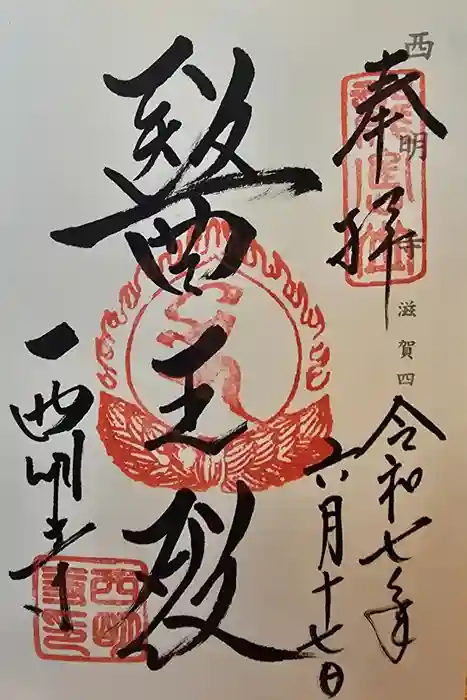 奉拝
西明寺 滋賀四
令和七年
六月十七日
醫王殿
西明寺